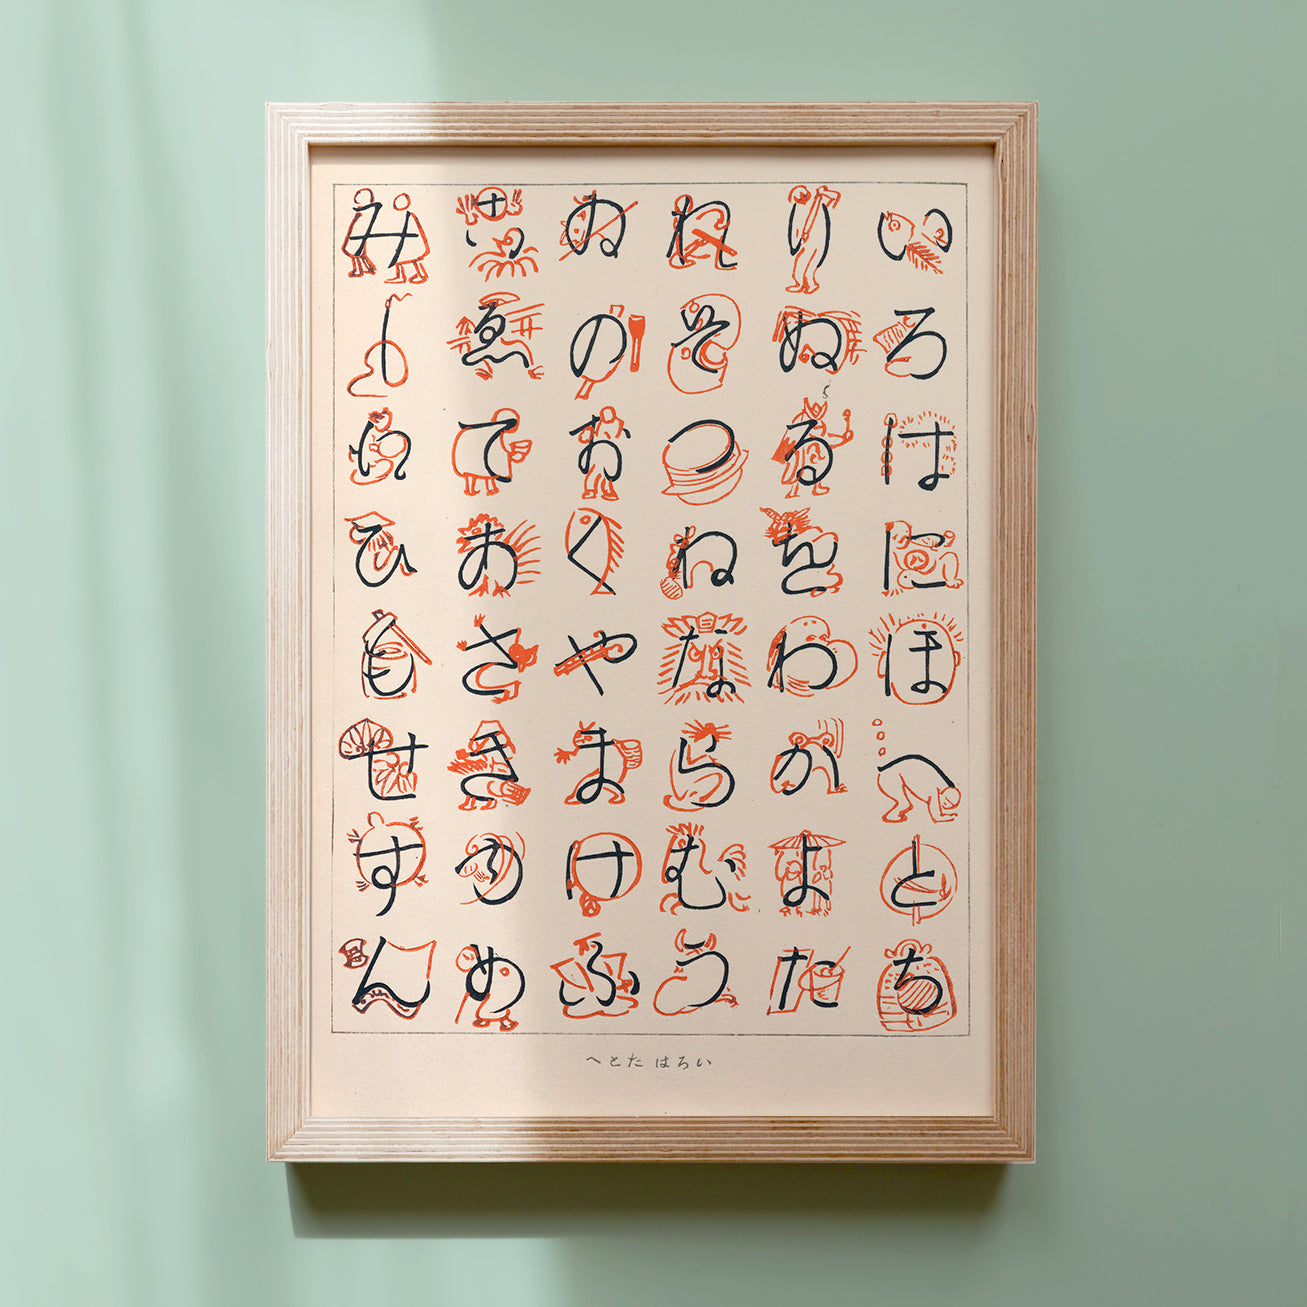 いろはにほへとち
りぬるをわかよた
れそつねならむう
ゐのおくやまけふ
ゑてあさきゆめ
みしひもせすん
いろは たとへ